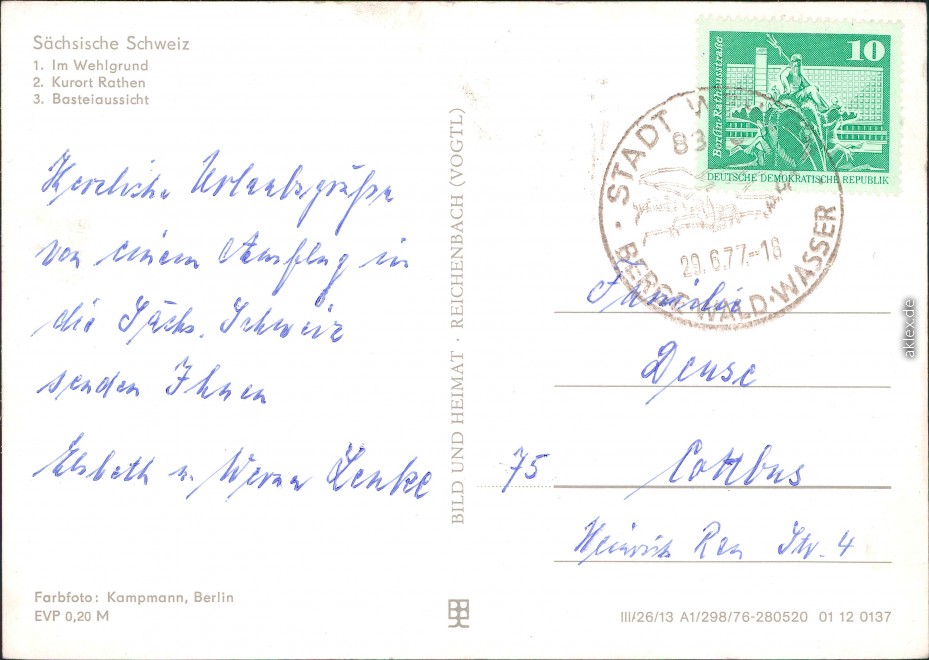 Sächsische Schweiz
1. Im Wehlgrund
2. Kurort Rathen
3. Basteiaussicht
Herzliche Urlaubsgrüße
von einem Ausflug in
die Sächs. Schweiz
senden Ihnen
Elsbeth u. Werner Lenke
Farbfoto: Kampmann, Berlin
EVP 0,20 M
BILD UND HEIMAT · REICHENBACH (VOGTL)
10
Berlin·Rathausstraße
DEUTSCHE DEMOKRATISCHE REPUBLIK
· STADT
83
29.6.77.-18
BERGE·WALD·WASSER
Familie
Deuse
75 Cottbus
Heinrich Rau Str. 4
III/26/13 A1/298/76-280520 01 12 0137
aklex.de